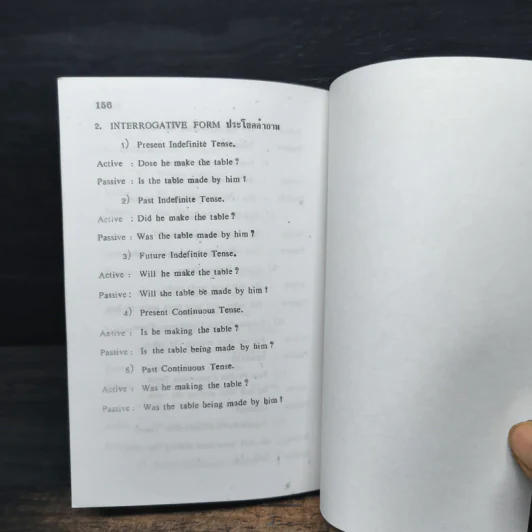 156
2. INTERROGATIVE FORM ประโยคคำถาม
1) Present Indefinite Tense.
Active : Dose he make the table?
Passive : Is the table made by him?
2) Past Indefinite Tense.
Active : Did he make the table?
Passive : Was the table made by him?
3) Future Indefinite Tense.
Active : Will he make the table?
Passive : Will the table be made by him?
4) Present Continuous Tense.
Active : Is he making the table?
Passive : Is the table being made by him?
5) Past Continuous Tense.
Active : Was he making the table?
Passive : Was the table being made by him?